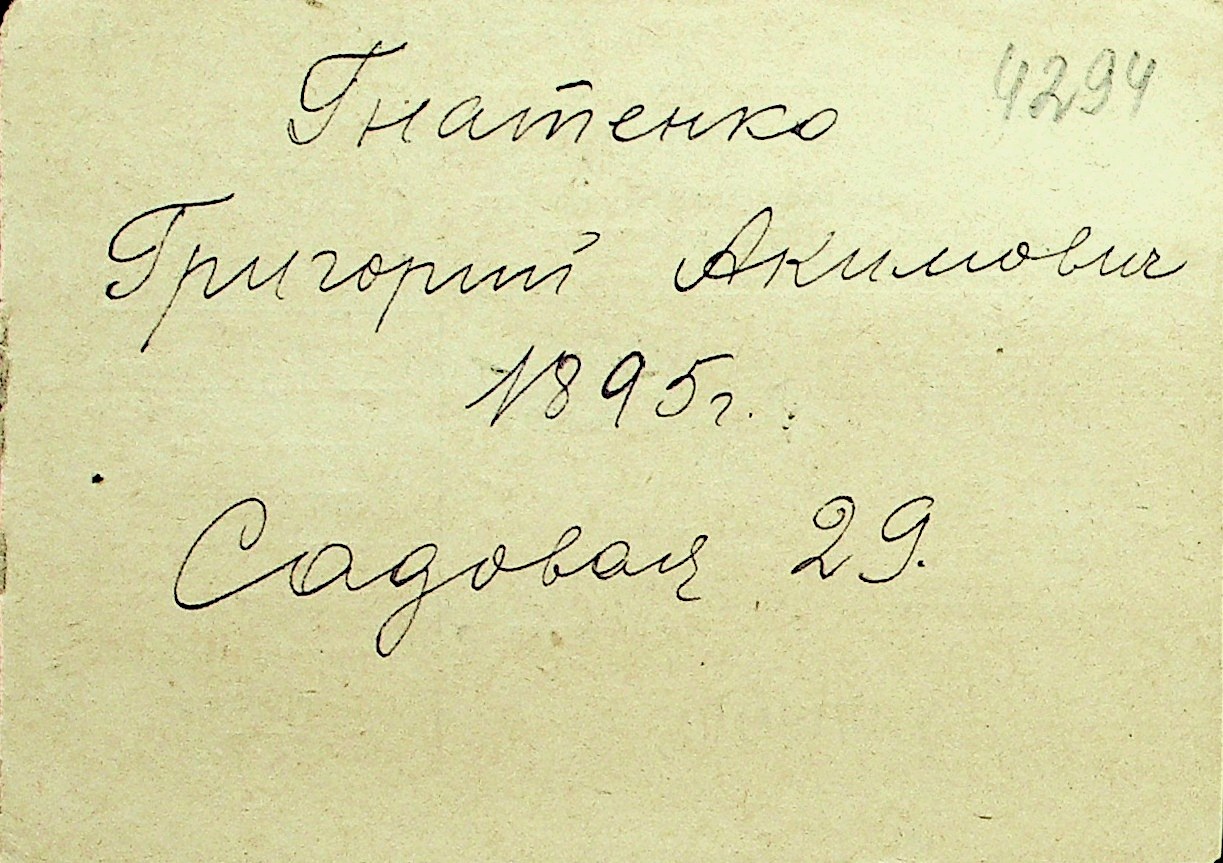 4294
Гнатенко
Григорий Акимович
1895г.
Садовая 29.